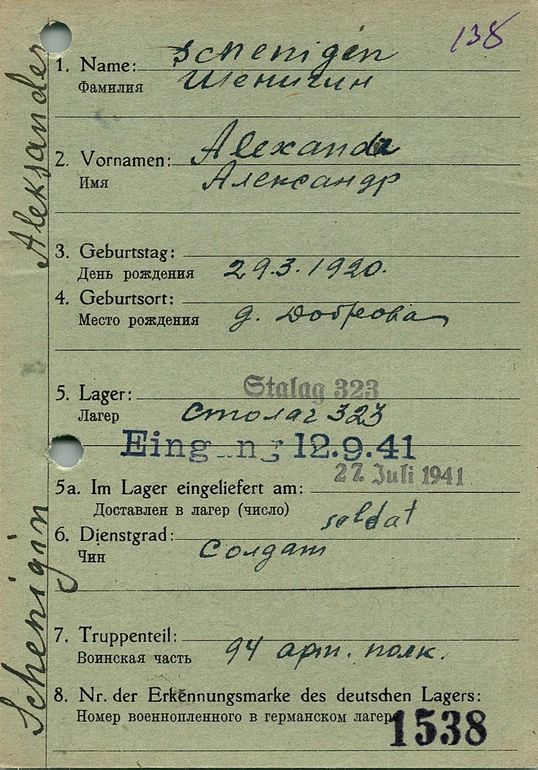 138
Schenigin Aleksander
1. Name: Schenigin
Фамилия Шенигин
2. Vornamen: Alexander
Имя Александр
3. Geburtstag:
День рождения 29.3.1920.
4. Geburtsort:
Место рождения д. Доброва
5. Lager: Stalag 323
Лагер столаг 323
Eingang 12.9.41
27. Juli 1941
5a. Im Lager eingeliefert am:
Доставлен в лагер (число)
soldat
6. Dienstgrad:
Чин солдат
7. Truppenteil:
Воинская часть 94 арт. полк.
8. Nr. der Erkennungsmarke des deutschen Lagers:
Номер военнопленного в германском лагере
1538